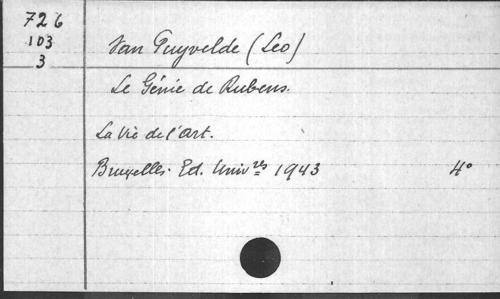 726
103
3
Van Puyvelde (Leo)
Le Génie de Rubens.
La Vie de l'art.
Bruxelles. Ed. Univres 1943 4°